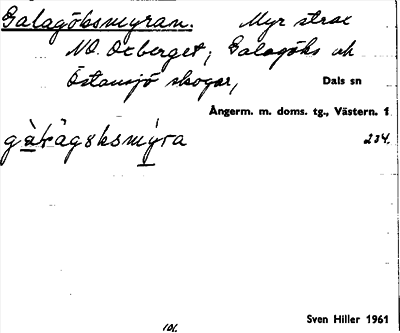 Galagöksmyran. Myr strax
NO. Oxberget; Galagöks och
Östansjö skogar,
Dals sn
Ångerm. m. doms. tg., Västern. 1
234.
Sven Hiller 1961